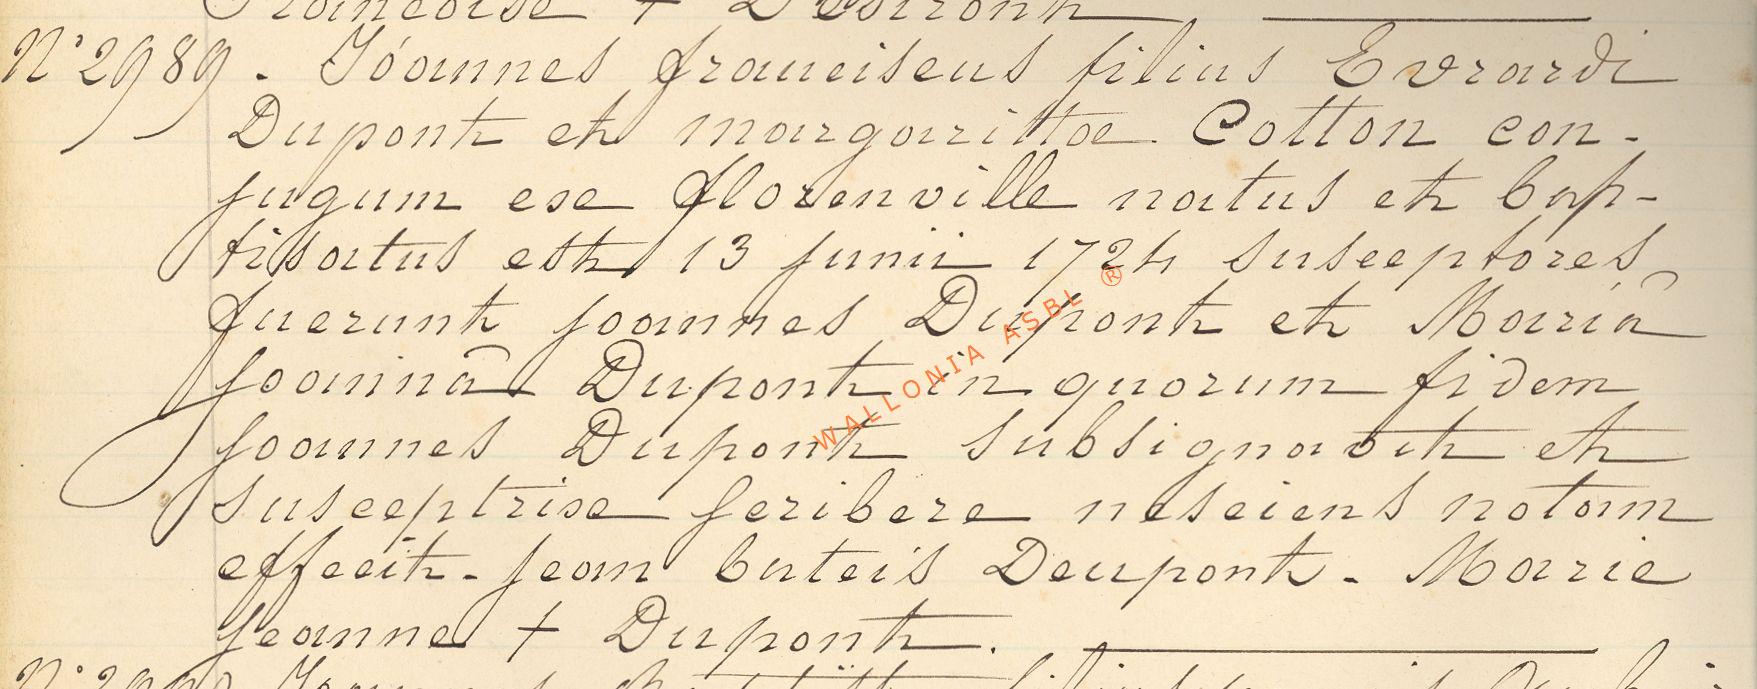 Françoise + Desironh
N° 2989. Jóannes franciscus filius Evrardi
Dupont et margarittae Cotton con-
jugum ex florenville natus et bap-
tisatus est 13 junii 1724 susceptores
fuerunt joannes Dupont et Mariâ
joannâ Dupont in quorum fidem
joannes Dupont subsignavit et
susceptrix scribere nesciens notam
effecit. jean bateis Deupont. Marie
jeanne + Dupont.
N° 2990
WALLONIA ASBL ®